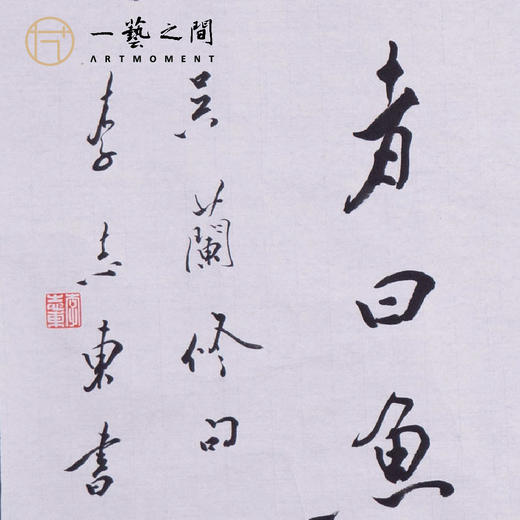 一藝之間
ARTMOMENT
者曰魚
吴蘭修句
李志東書